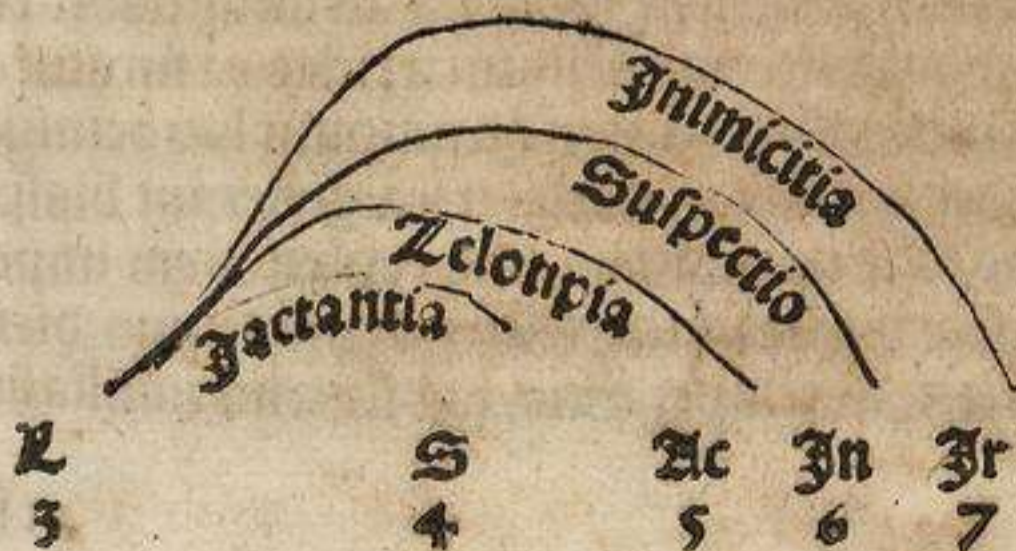 Inimicitia
Suſpectio
Zelotipia
Iactantia
L S Ac In Ir
3 4 5 6 7